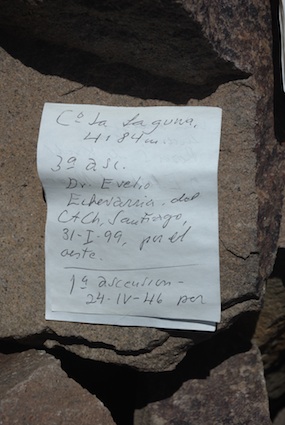 Cº La Laguna,
4184m.
3ª asc.
Dr. Evelio
Echevarría, del
CACh, Santiago,
31-I-99, por el
oeste.
1ª ascensión -
24-IV-46 por